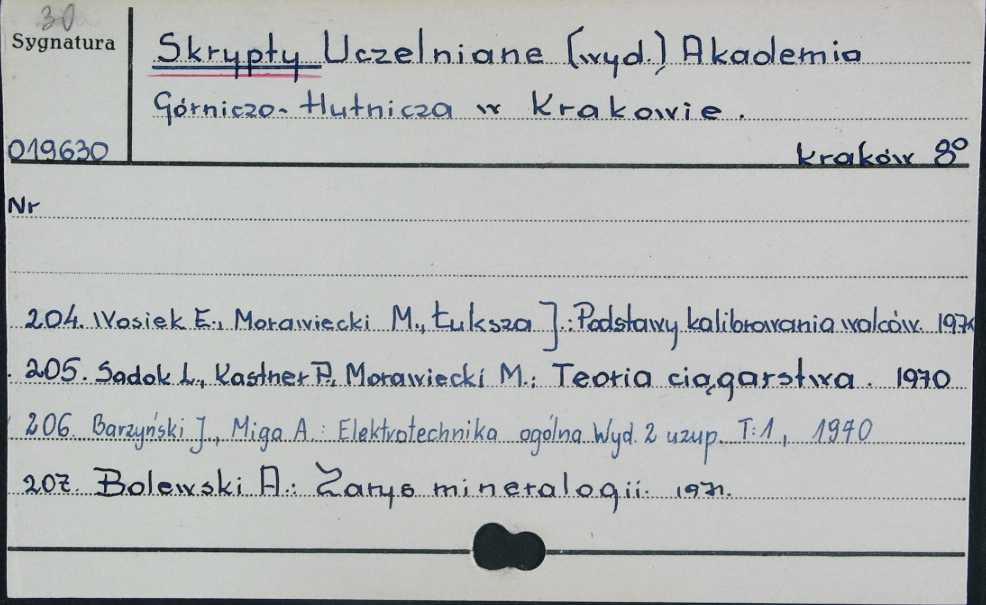 30
Sygnatura
Skrypty Uczelniane (wyd.) Akademia
Górniczo-Hutnicza w Krakowie.
019630
Kraków 8°
Nr
204. Wosiek E., Morawiecki M., Łuksza J.: Podstawy kalibrowania walców. 197
205. Sadok L., Kastner P., Morawiecki M.: Teoria ciągarstwa. 1970
206. Barzyński J., Miga A.: Elektrotechnika ogólna Wyd. 2 uzup. T:1, 1970
207. Bolewski A.: Zarys mineralogii. 1971.